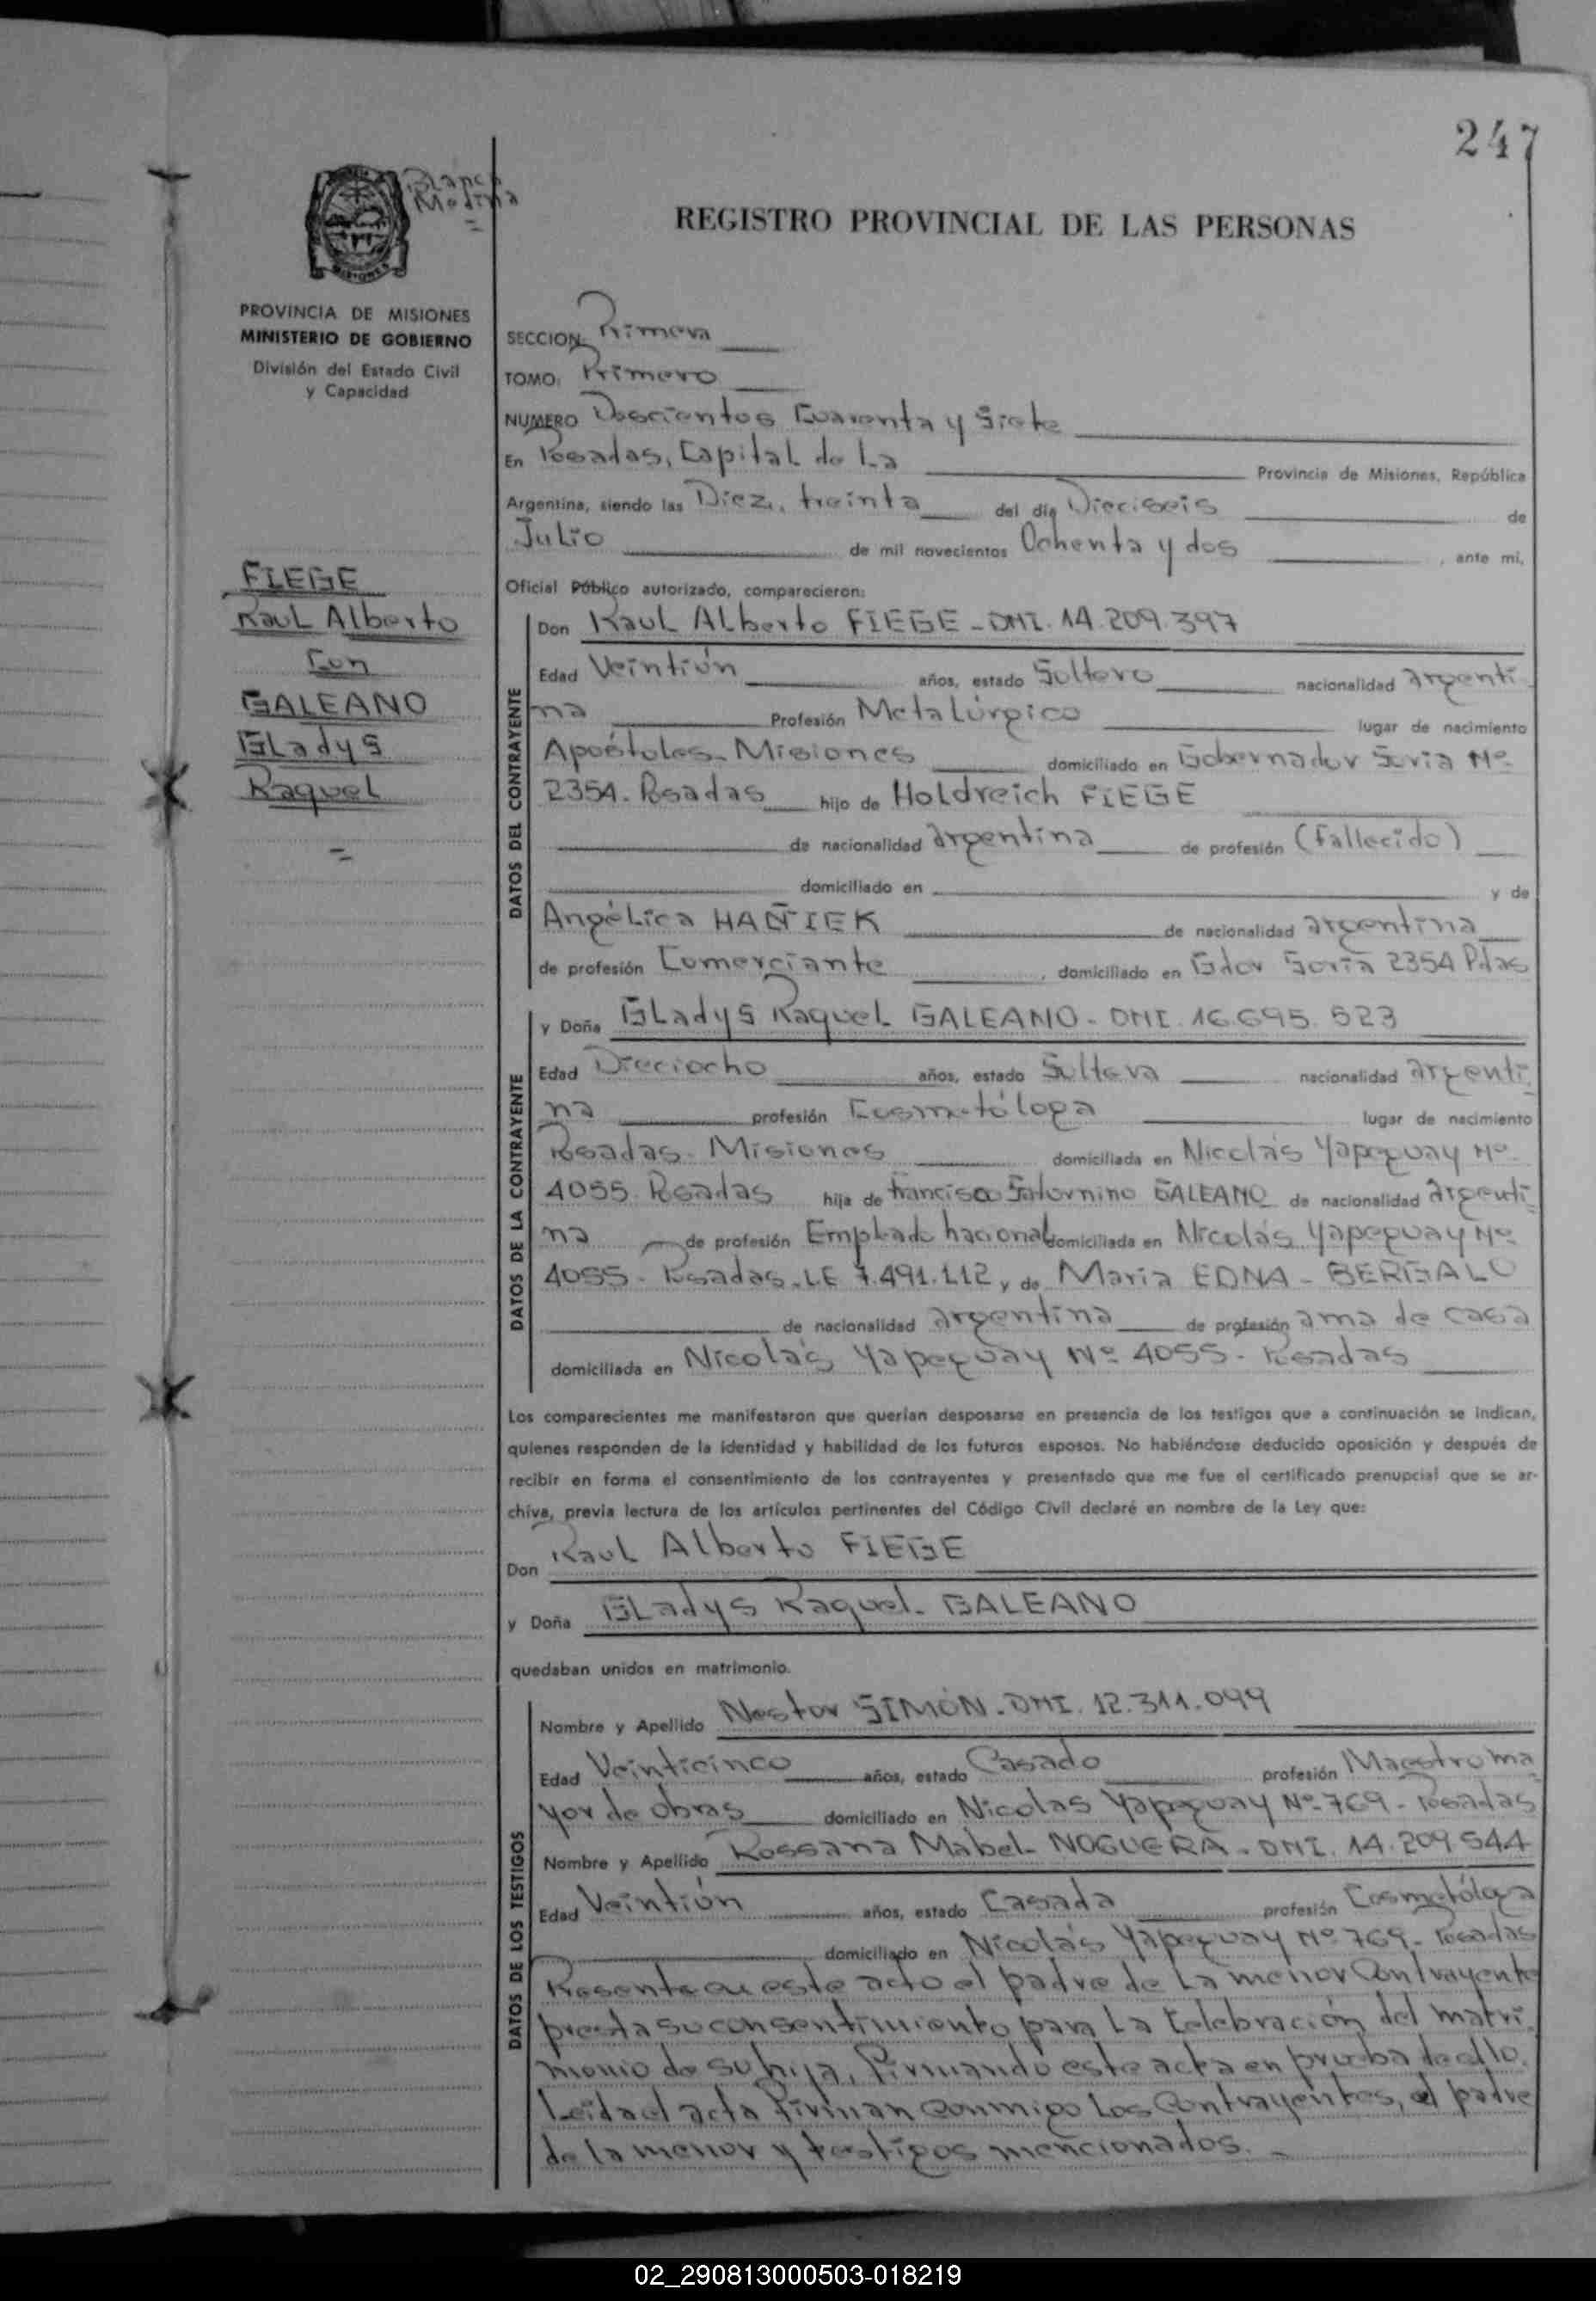 247
Blanca
Medina
=
MISIONES
REGISTRO PROVINCIAL DE LAS PERSONAS
PROVINCIA DE MISIONES
MINISTERIO DE GOBIERNO
División del Estado Civil
y Capacidad
SECCION: Primera
TOMO: Primero
NUMERO Doscientos Cuarenta y Siete
En Posadas, Capital de La Provincia de Misiones, República
Argentina, siendo las Diez, treinta del día Dieciseis de
Julio de mil novecientos Ochenta y dos, ante mí,
Oficial Público autorizado, comparecieron:
FIEGE
Raul Alberto
Con
GALEANO
Gladys
Raquel
=
DATOS DEL CONTRAYENTE
Don Raul Alberto FIEGE - DNI. 14.209.397
Edad Veintiún años, estado Soltero nacionalidad argenti
na Profesión Metalúrgico lugar de nacimiento
Apóstoles- Misiones domiciliado en Gobernador Soria Nº
2354- Posadas hijo de Holdreich FIEGE
de nacionalidad argentina de profesión (Fallecido)
domiciliado en y de
Angélica HAÑIEK de nacionalidad argentina
de profesión Comerciante, domiciliado en Gdor Soria 2354 Pdas
DATOS DE LA CONTRAYENTE
y Doña Gladys Raquel GALEANO - DNI. 16.695.523
Edad Dieciocho años, estado Soltera nacionalidad argenti
na profesión Cosmetóloga lugar de nacimiento
Posadas- Misiones domiciliada en Nicolás Yapeguay Nº
4055- Posadas hija de Francisco Saturnino GALEANO de nacionalidad argenti
na de profesión Empleado nacional domiciliada en Nicolás Yapeguay Nº
4055- Posadas- LE 7.491.112 y de Maria EDNA - BERGALO
de nacionalidad argentina de profesión ama de casa
domiciliada en Nicolás Yapeguay Nº 4055- Posadas
Los comparecientes me manifestaron que querían desposarse en presencia de los testigos que a continuación se indican,
quienes responden de la identidad y habilidad de los futuros esposos. No habiéndose deducido oposición y después de
recibir en forma el consentimiento de los contrayentes y presentado que me fue el certificado prenupcial que se ar-
chiva, previa lectura de los artículos pertinentes del Código Civil declaré en nombre de la Ley que:
Don Raul Alberto FIEGE
y Doña Gladys Raquel- GALEANO
quedaban unidos en matrimonio.
DATOS DE LOS TESTIGOS
Nombre y Apellido Nestor SIMÓN- DNI. 12.311.099
Edad Veinticinco años, estado Casado profesión Maestro ma
yor de obras domiciliado en Nicolas Yapeguay Nº 769- Posadas
Nombre y Apellido Rossana Mabel NOGUERA- DNI. 14.209.544
Edad Veintiún años, estado Casada profesión Cosmetóloga
domiciliado en Nicolás Yapeguay Nº 769- Posadas
Presente en este acto el padre de La menor Contrayente
presta su consentimiento para La Celebración del matri
monio de su hija, firmando este acta en prueba de ello.
Leida el acta firman conmigo Los Contrayentes, el padre
de la menor y testigos mencionados. -
02_290813000503-018219